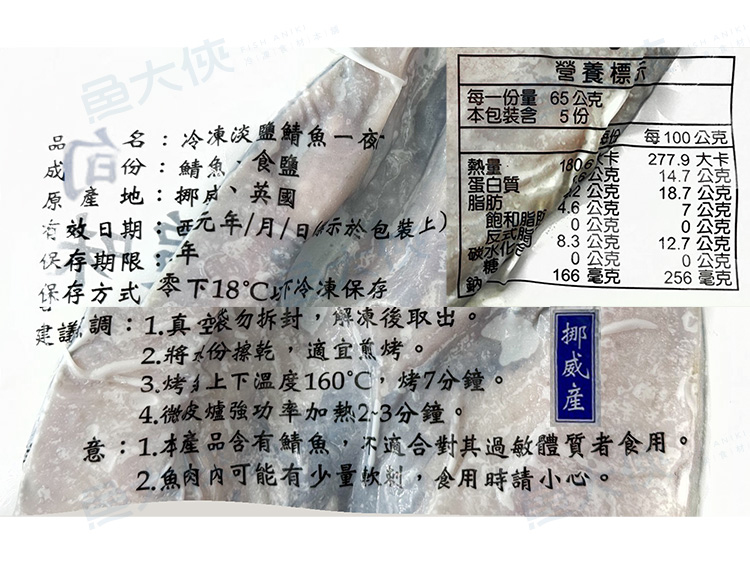 魚大俠
品名：冷凍淡鹽鯖魚一夜
成份：鯖魚、食鹽
原產地：挪威、英國
有效日期：西元年/月/日(標示於包裝上)
保存期限：年
保存方式 零下18°C以下冷凍保存
建議 調：1.真空袋勿拆封，解凍後取出。
2.將水份擦乾，適宜煎烤。
3.烤 上下溫度160°C，烤7分鐘。
4.微波爐強功率加熱2~3分鐘。
意：1.本產品含有鯖魚，不適合對其過敏體質者食用。
2.魚肉內可能有少量軟刺，食用時請小心。
營養標示
每一份量 65公克
本包裝含 5份
每100公克
熱量 180.6大卡 277.9大卡
蛋白質 公克 14.7公克
脂肪 公克 18.7公克
飽和脂肪 4.6公克 7公克
反式脂肪 0公克 0公克
碳水化合 8.3公克 12.7公克
糖 0公克 0公克
鈉 166毫克 256毫克
挪威產